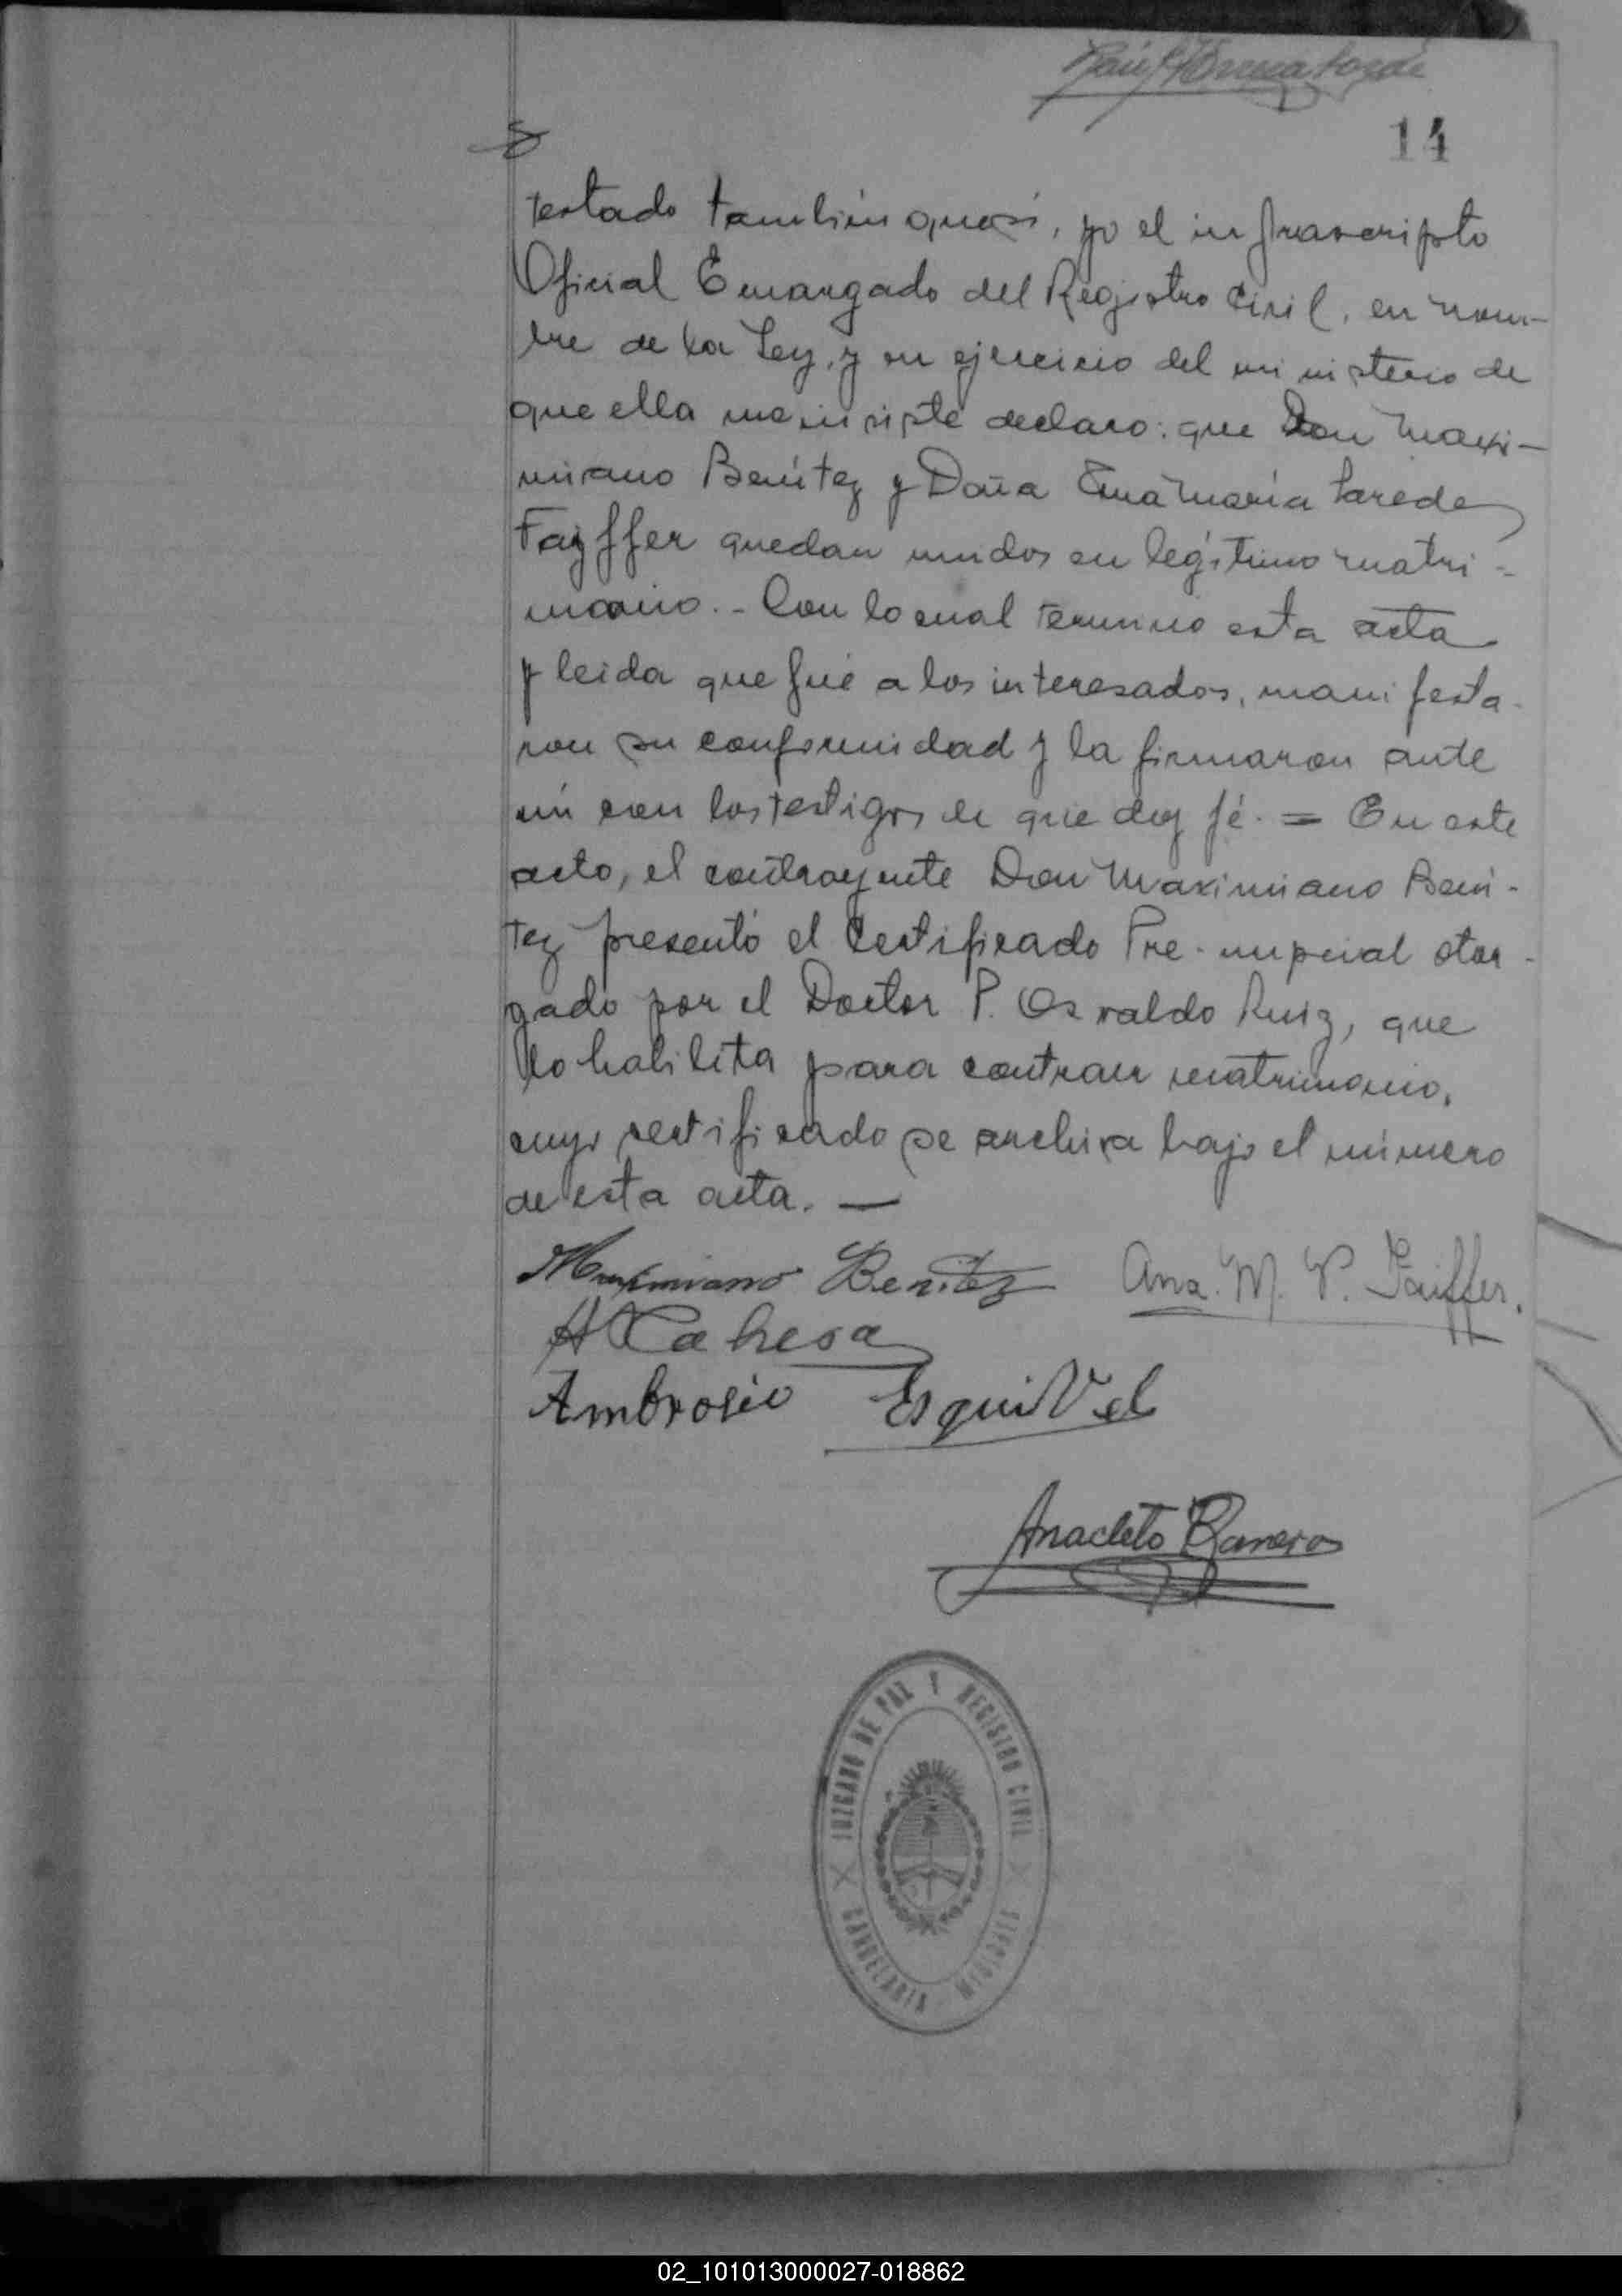 14
testado también que sí, yo el infrascripto
Oficial Encargado del Registro Civil, en nom-
bre de la Ley, y en ejercicio del ministerio de
que ella me inviste declaro: que Don Maxi-
miano Benítez y Doña Ana María Paredes
Faiffer quedan unidos en legítimo matri-
monio.- Con lo cual termino esta acta
y leida que fué a los interesados, manifesta-
ron su conformidad y la firmaron ante
mi con los testigos de que doy fé. = En este
acto, el contrayente Don Maximiano Bení-
tez presentó el Certificado Pre-nupcial otor-
gado por el Doctor P. Osvaldo Ruiz, que
lo habilita para contraer matrimonio,
cuyo certificado se archiva bajo el número
de esta acta. —
Maximiano Benitez Ana. M. P. Faiffer.
A Cabresa
Ambrosio Esquivel
Anacleto
JUZGADO DE PAZ Y REGISTRO CIVIL
CANDELARIA - MISIONES
02_101013000027-018862